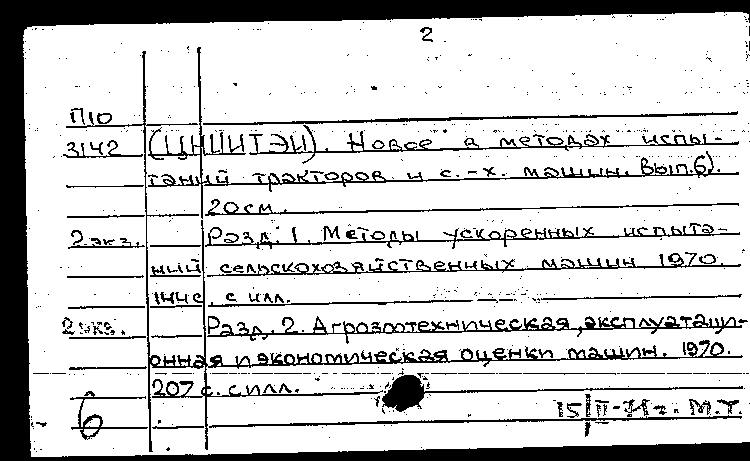 2
П10
3142 (ЦНИИТЭИ). Новое в методах испы-
таний тракторов и с.-х. машин. Вып.6).
20см.
2 экз. Разд. 1. Методы ускоренных испыта-
ний сельскохозяйственных машин 1970.
144с. с илл.
2 экз. Разд. 2. Агрозоотехническая, эксплуатаци-
онная и экономическая оценки машин. 1970.
207 с. с илл.
6 15/II-71г. М.Т.